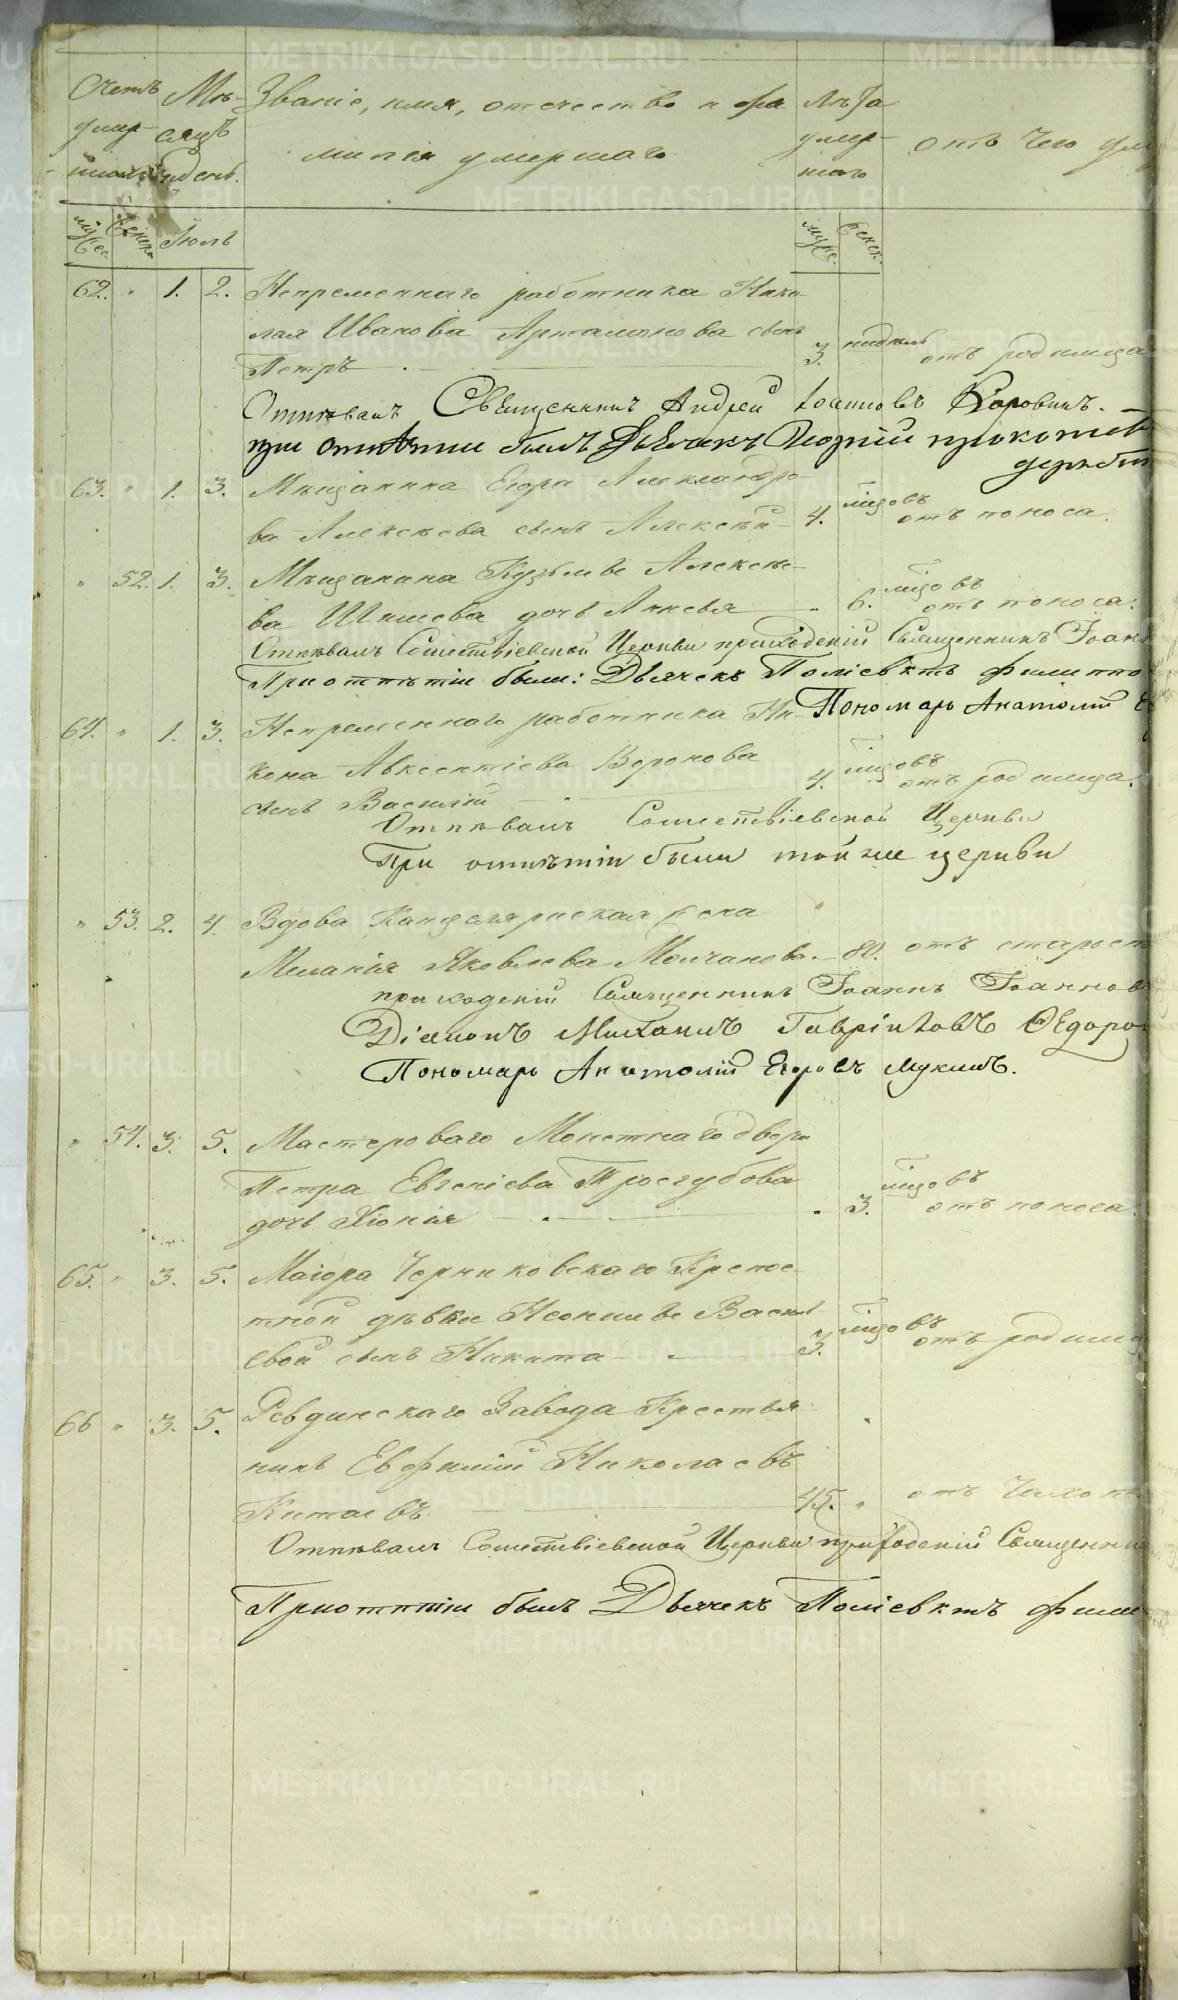 Счетъ Мѣ- Званіе, имя, отчество и фа Лѣта
умер- сяцъ милія умершаго умер- отъ чего
шихъ и день. шаго
муж. женск. Іюль муж. женск.
62. „ 1. 2. Непременнаго работника Нико-
лая Иванова Артамонова сынъ
Петръ 3. недѣль отъ родимца
Отпѣвалъ Священникъ Андрей Іоанновъ Коровинъ.
при отпѣтіи былъ Дьячекъ Георгій
63. „ 1. 3. Мѣщанина Егора Александро-
ва Алексѣева сынъ Алексѣй 4. мѣсяцовъ отъ поноса.
„ 52. 1. 3. Мѣщанина Кузьмы Алексѣе-
ва Шишева дочь „ 6. мѣсяцовъ отъ поноса.
Отпѣвалъ Сошествіевской Церкви приходскій Священникъ
При отпѣтіи были: Дьячекъ Поліевктъ
Пономарь Анатолій
64. „ 1. 3. Непременного работника Ни-
кона Авксентіева Воронова
сынъ Василій 4. мѣсяцовъ отъ родимца.
Отпѣвалъ Сошествіевской Церкви
При отпѣтіи были той же церкви
„ 53. 2. 4. Вдова Канцелярская
Меланія Яковлева Молчанова. 80. отъ
приходскій Священникъ Іоаннъ
Діаконъ Михаилъ Гавріиловъ
Пономарь Анатолій Егоровъ
„ 54. 3. 5. Мастероваго Монетнаго двора
Петра Евгеніева Тросгубова
дочь Хіонія „ 3. мѣсяцовъ отъ поноса.
65. „ 3. 5. Маіора Черниковскаго Крепос-
тной дѣвки Неонилы
сынъ Никита 3. мѣсяцовъ отъ
66 „ 3. 5. Ревдинскаго Завода Крестья-
нинъ Евфимій Николаевъ
Китаевъ 45. „ отъ
Отпѣвалъ Сошествіевской Церкви приходскій
При отпѣтіи былъ Дьячекъ Поліевктъ
METRIKI.GASO-URAL.RU